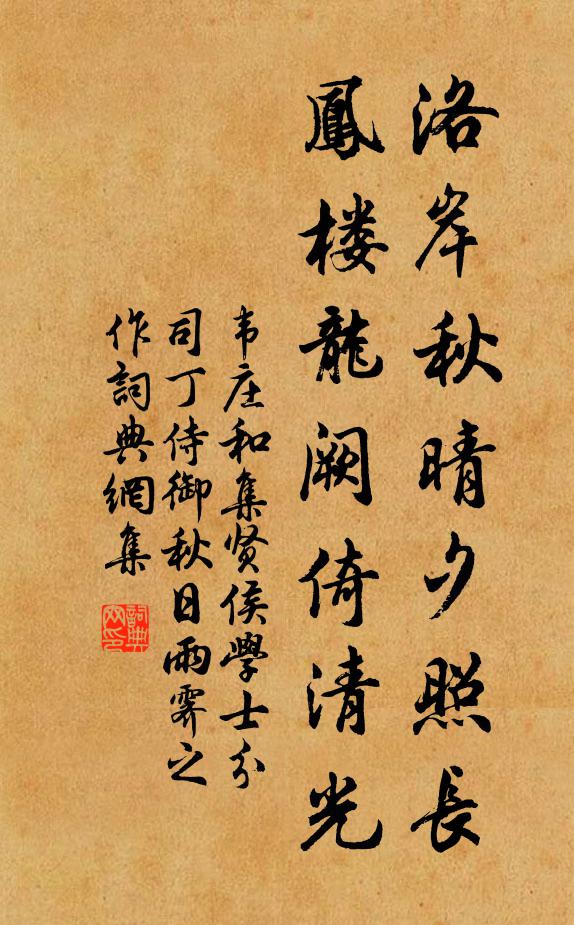 洛岸秋晴夕照長
鳳楼龍闕倚清光
韦庄和集贤侯學士分
司丁侍御秋日雨霽之
作詞典網集
詞典
网印